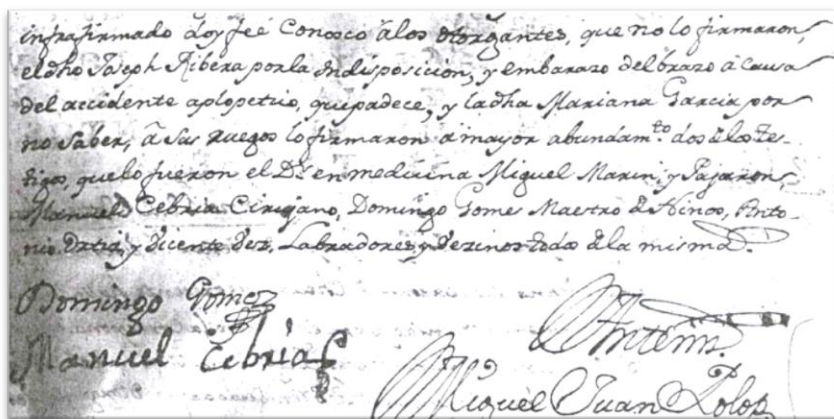 infrafirmado doy feé Conosco â los otorgantes, que no lo firmaron,
el dho Joseph Ribera por la Indisposicion, y embarazo del brazo â causa
del accidente aplopetico, que padece, y la dha Mariana Garcia por
no saber, â sus ruegos lo firmaron â mayor abundam.to dos de los tes-
tigos, que lo fueron el D.r en medicina Miguel Marin y Pajaron,
Manuel Cebria Cirujano, Domingo Gomez Maestro de Ninos, Anto-
nio Ortiz, y Vicente, Labradores, y Vezinos todos de la misma.
Domingo Gomez
Manuel Cebria
Ante mi.
Miguel Juan